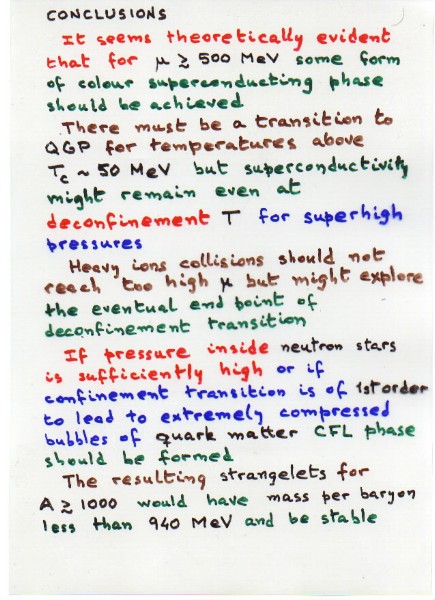 CONCLUSIONS
It seems theoretically evident
that for μ ≳ 500 MeV some form
of colour superconducting phase
should be achieved
There must be a transition to
QGP for temperatures above
Tc ~ 50 MeV but superconductivity
might remain even at
deconfinement T for superhigh
pressures
Heavy ions collisions should not
reach too high μ but might explore
the eventual end point of
deconfinement transition
If pressure inside neutron stars
is sufficiently high or if
confinement transition is of 1st order
to lead to extremely compressed
bubbles of quark matter CFL phase
should be formed
The resulting strangelets for
A ≳ 1000 would have mass per baryon
less than 940 MeV and be stable